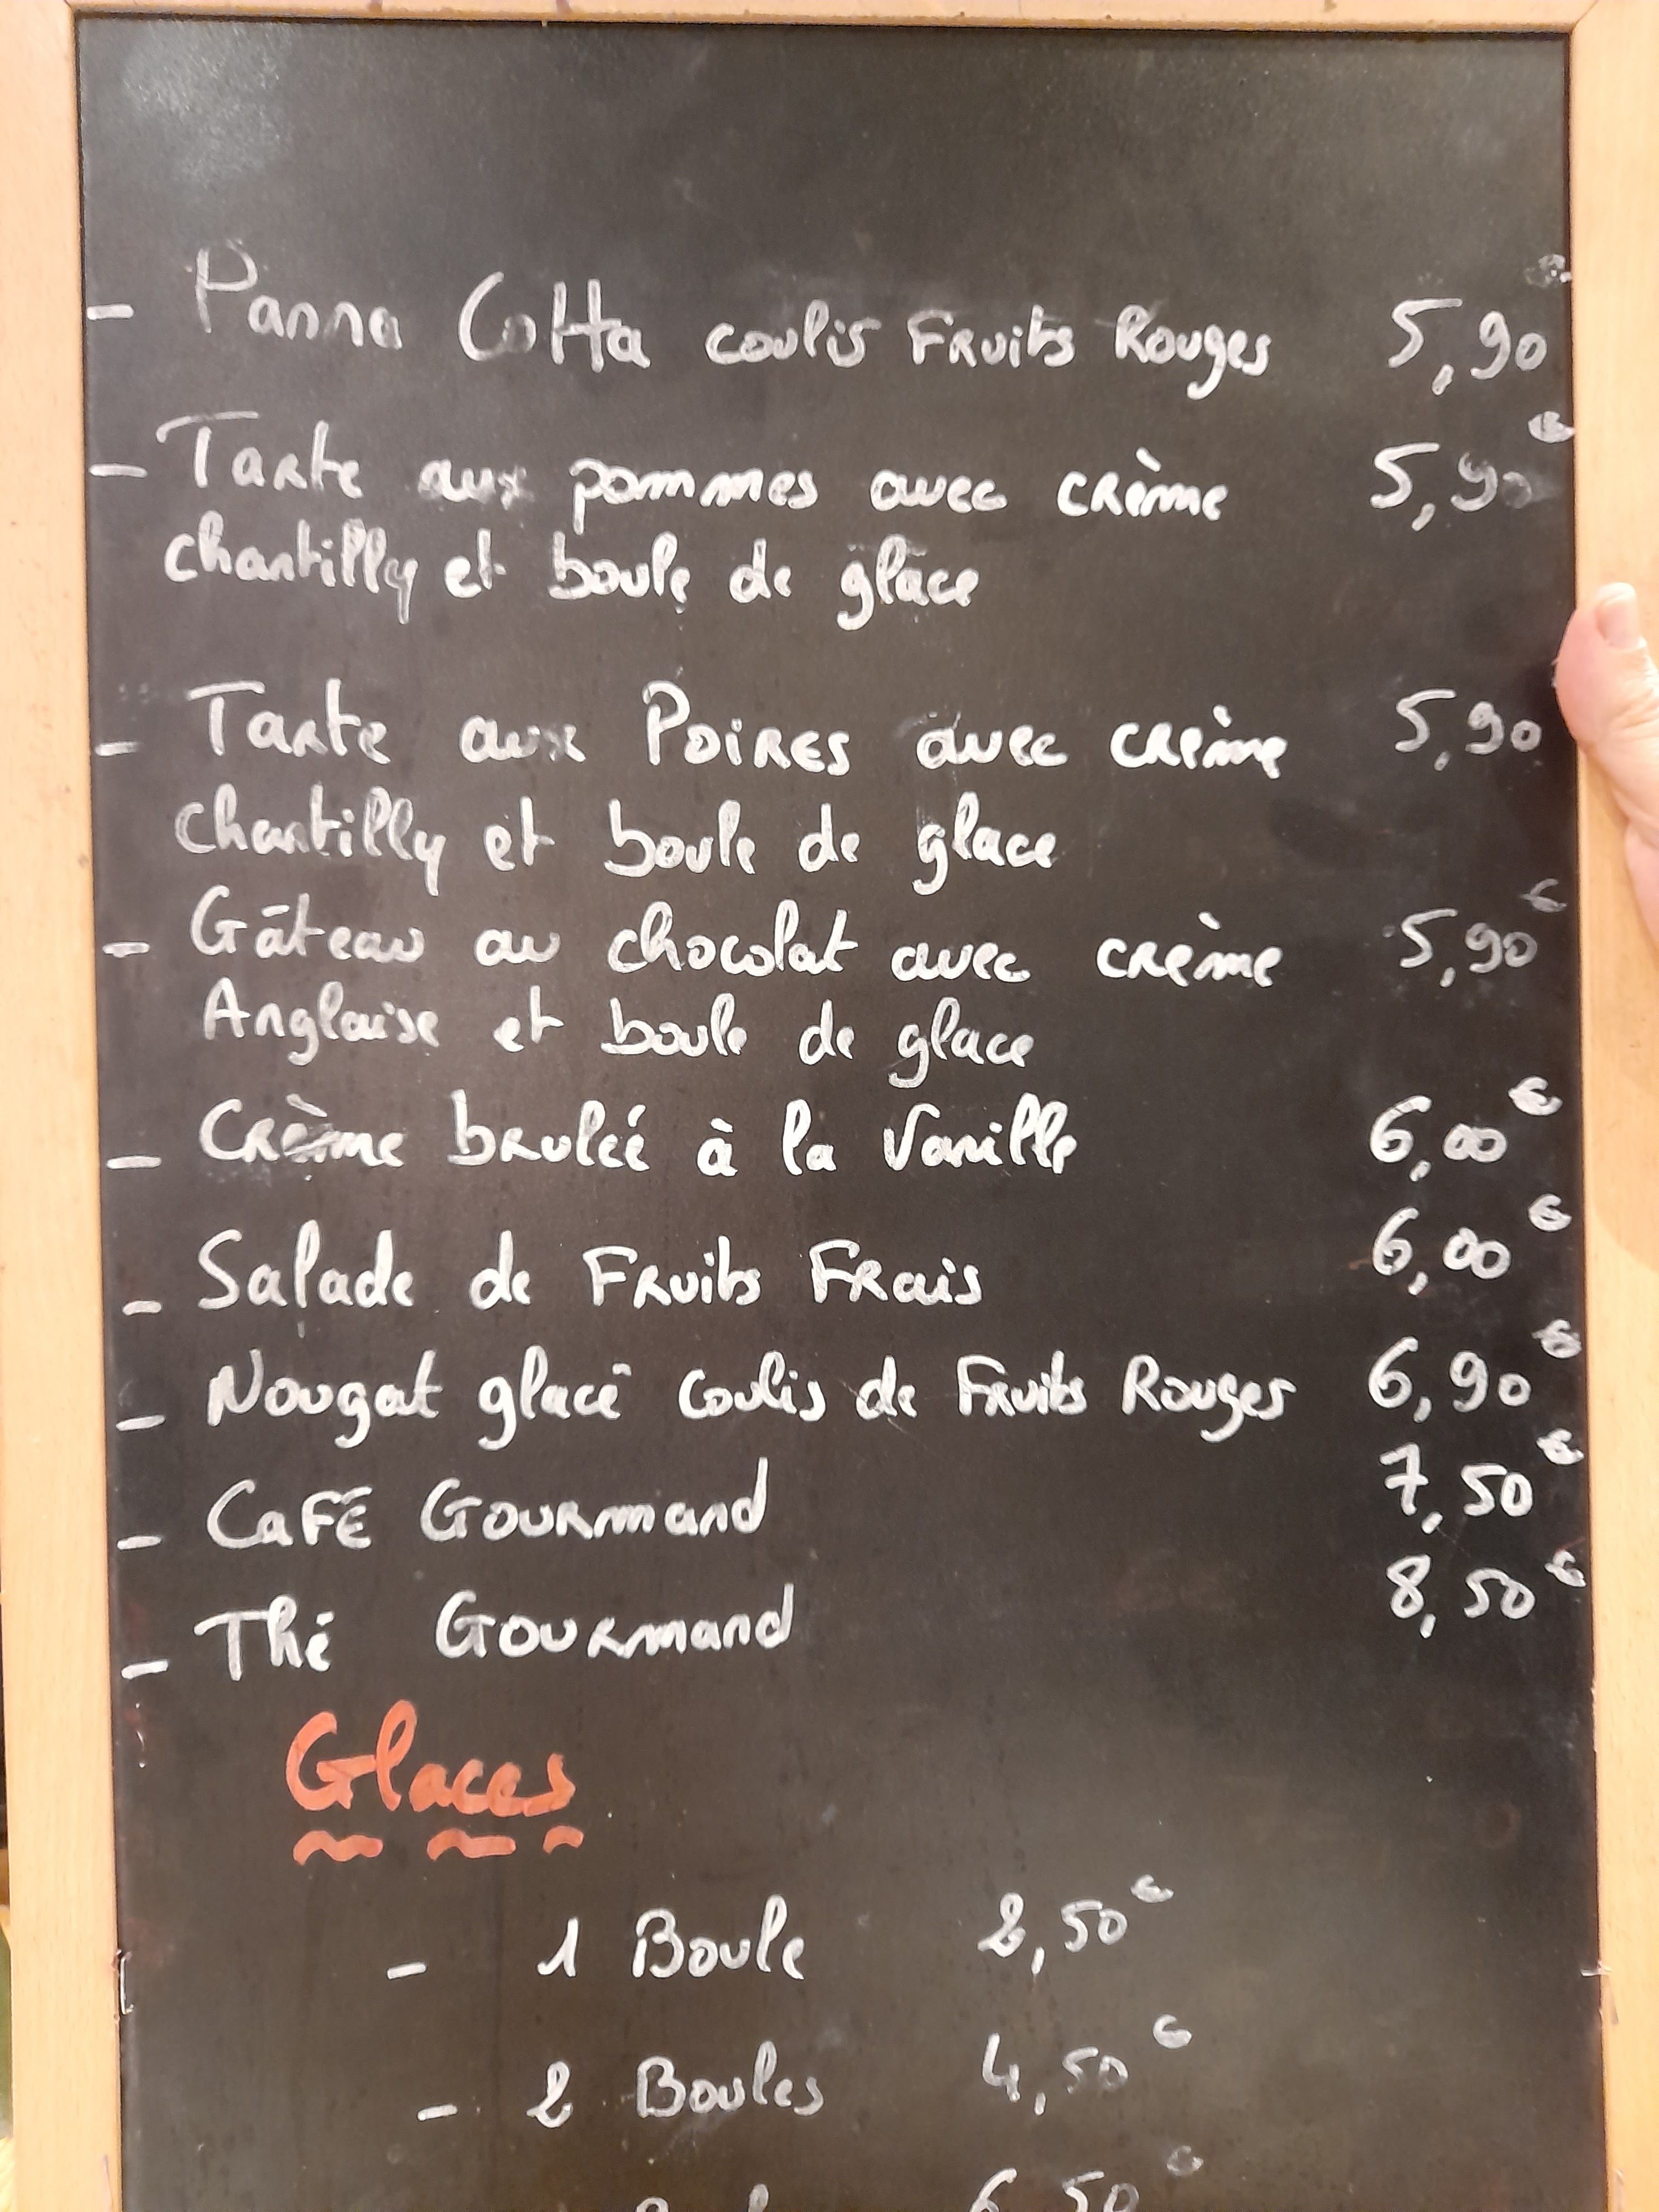 - Panna Cotta coulis Fruits Rouges 5,90€
- Tarte aux pommes avec crème 5,90€
chantilly et boule de glace
- Tarte aux Poires avec crème 5,90
chantilly et boule de glace
- Gâteau au chocolat avec crème 5,90€
Anglaise et boule de glace
- Crème brulée à la Vanille 6,00€
- Salade de Fruits Frais 6,00€
- Nougat glacé coulis de Fruits Rouges 6,90€
- CaFÉ Gourmand 7,50€
- Thé Gourmand 8,50€
Glaces
- 1 Boule 2,50€
- 2 Boules 4,50€
6,50€